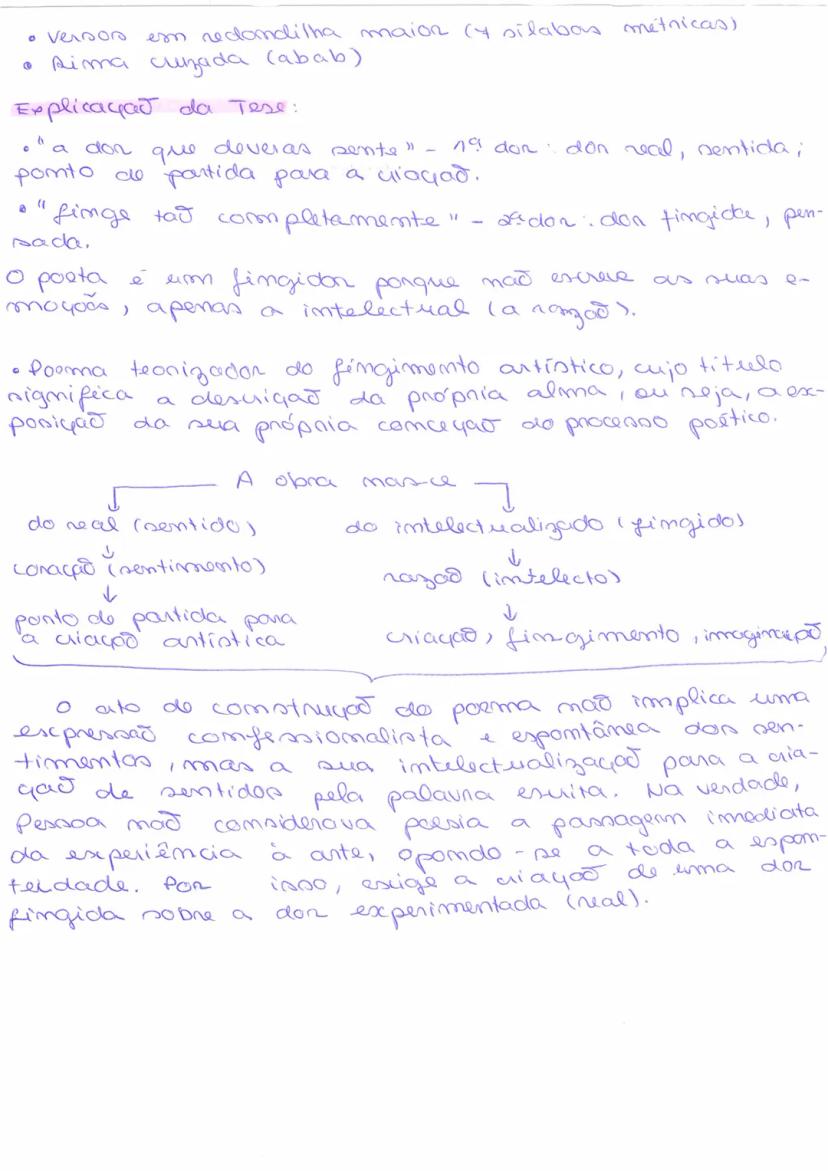 • Versos em redondilha maior (7 sílabas métricas)
• Rima cruzada (abab)
Explicação da Tese:
• "a dor que deveras sente" – 1ª dor: dor real, sentida;
ponto de partida para a criação.
• "finge tão completamente" – 2ª dor: dor fingida, pen-
sada.
O poeta é um fingidor porque não escreve as suas e-
moções, apenas a intelectual (a razão).
• Poema teorizador do fingimento artístico, cujo título
significa a descrição da própria alma, ou seja, a ex-
posição da sua própria conceção do processo poético.
A obra nasce
do real (sentido) do intelectualizado (fingido)
coração (sentimento) razão (intelecto)
ponto de partida para
a criação artística criação, fingimento, imaginação
O ato de construção do poema não implica uma
expressão confessionalista e espontânea dos sen-
timentos, mas a sua intelectualização para a cria-
ção de sentidos pela palavra escrita. Na verdade,
Pessoa não considerava poesia a passagem imediata
da experiência à arte, opondo-se a toda a espon-
teidade. Por isso, exige a criação de uma dor
fingida sobre a dor experimentada (real).